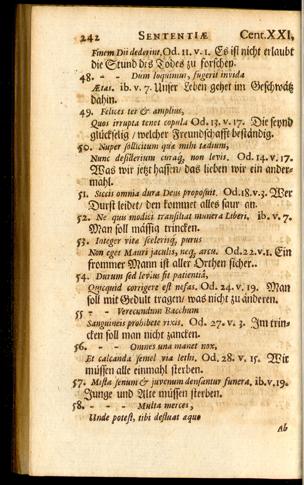 242 SENTENTIÆ Cent. XXI,
Finem Dii dederint, Od. 11. v. 1. Es ist nicht erlaubt
die Stund des Todes zu forschen.
48. - - Dum loquimur, fugerit invida
Ætas. ib. v. 7. Unser Leben gehet im Geschwätz
dahin.
49. Felices ter & amplius,
Quos irrupta tenet copula Od. 13. v. 17. Die seynd
glückselig / welcher Freundschafft beständig.
50. Nuper sollicitum quæ mihi tædium,
Nunc desiderium curaq́, non levis. Od. 14. v. 17.
Was wir jetzt hassen, das lieben wir ein ander-
mahl.
51. Siccis omnia dura Deus proposuit. Od. 18. v. 3. Wer
Durst leidet, den kommet alles saur an.
52. Ne quis modici transiliat munera Liberi, ib. v. 7.
Man soll mässig trincken.
53. Integer vitæ scelerisq́, purus
Non eget Mauri jaculis, neq, arcu. Od. 22. v. 1. Ein
frommer Mann ist aller Orthen sicher..
54. Durum sed levius fit patientiâ,
Quicquid corrigere est nefas. Od. 24. v. 19. Man
soll mit Gedult tragen / was nicht zu änderen.
55 - - Verecundum Bacchum
Sanguineis prohibete rixis. Od. 27. v. 3. Im trin-
cken soll man nicht zancken.
56. - - Omnes una manet nox,
Et calcanda semel via lethi. Od. 28. v. 15. Wir
müssen alle einmahl sterben.
57. Mista senum & juvenum densantur funera, ib. v. 19.
Junge und Alte müssen sterben.
58. - - Multa merces,
Unde potest, tibi defluat æquo
Ab